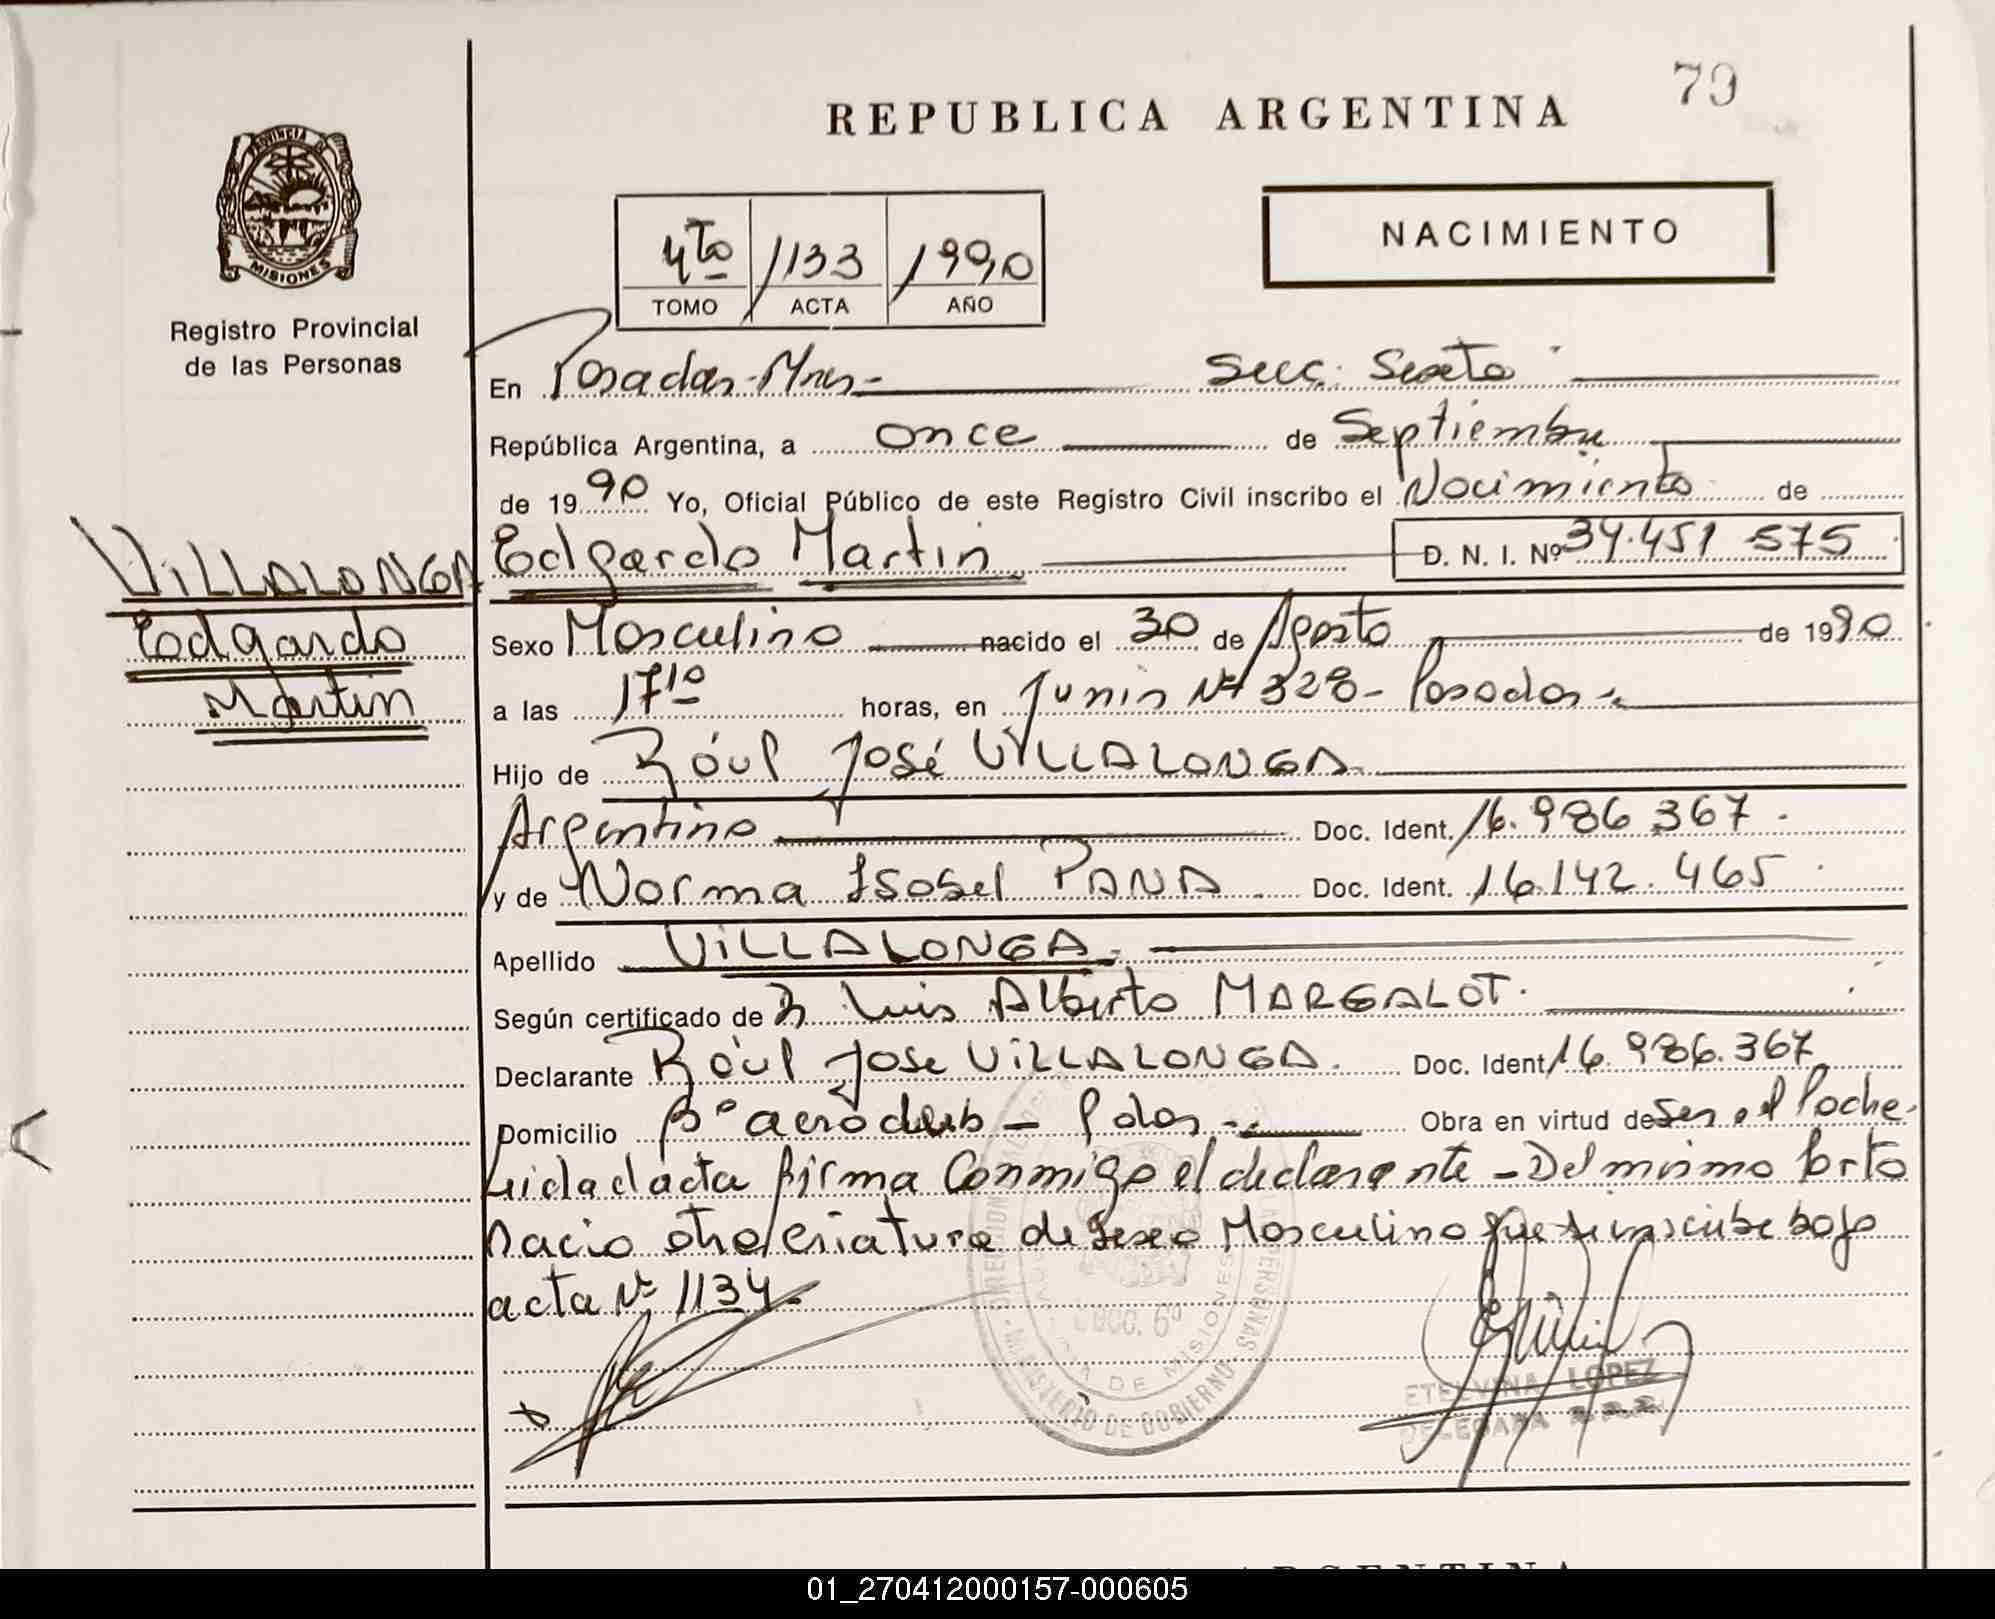 79
REPUBLICA ARGENTINA
PROVINCIA DE
MISIONES
Registro Provincial
de las Personas
4to 1133 1990
TOMO ACTA AÑO
NACIMIENTO
En Posadas-Mnes- Secc. Sexta
República Argentina, a once de Septiembre
de 1990 Yo, Oficial Público de este Registro Civil inscribo el Nacimiento de
VILLALONGA
Edgardo
Martin
Edgardo Martin D. N. I. Nº 34.451 575
Sexo Masculino nacido el 30 de Agosto de 1990
a las 17 10 horas, en Junin Nº 328- Posadas-
Hijo de Raúl José VILLALONGA
Argentino Doc. Ident. 16.986 367.
y de Norma Isabel PANA Doc. Ident. 16.142.465
Apellido VILLALONGA.
Según certificado de Luis Alberto MARGALOT.
Declarante Raúl Jose VILLALONGA. Doc. Ident. 16.986.367
Domicilio Bº aeroclub - Pdas.- Obra en virtud de Ser el Padre.
Leida el acta firma Conmigo el declarante - Del mismo Parto
nacio otra criatura de sexo Masculino que se inscribe bajo
acta Nº 1134.
SECC. 6º
MINISTERIO DE GOBIERNO
DE MISIONES
ETELVINA LOPEZ
DELEGADA
ARGENTINA
01_270412000157-000605